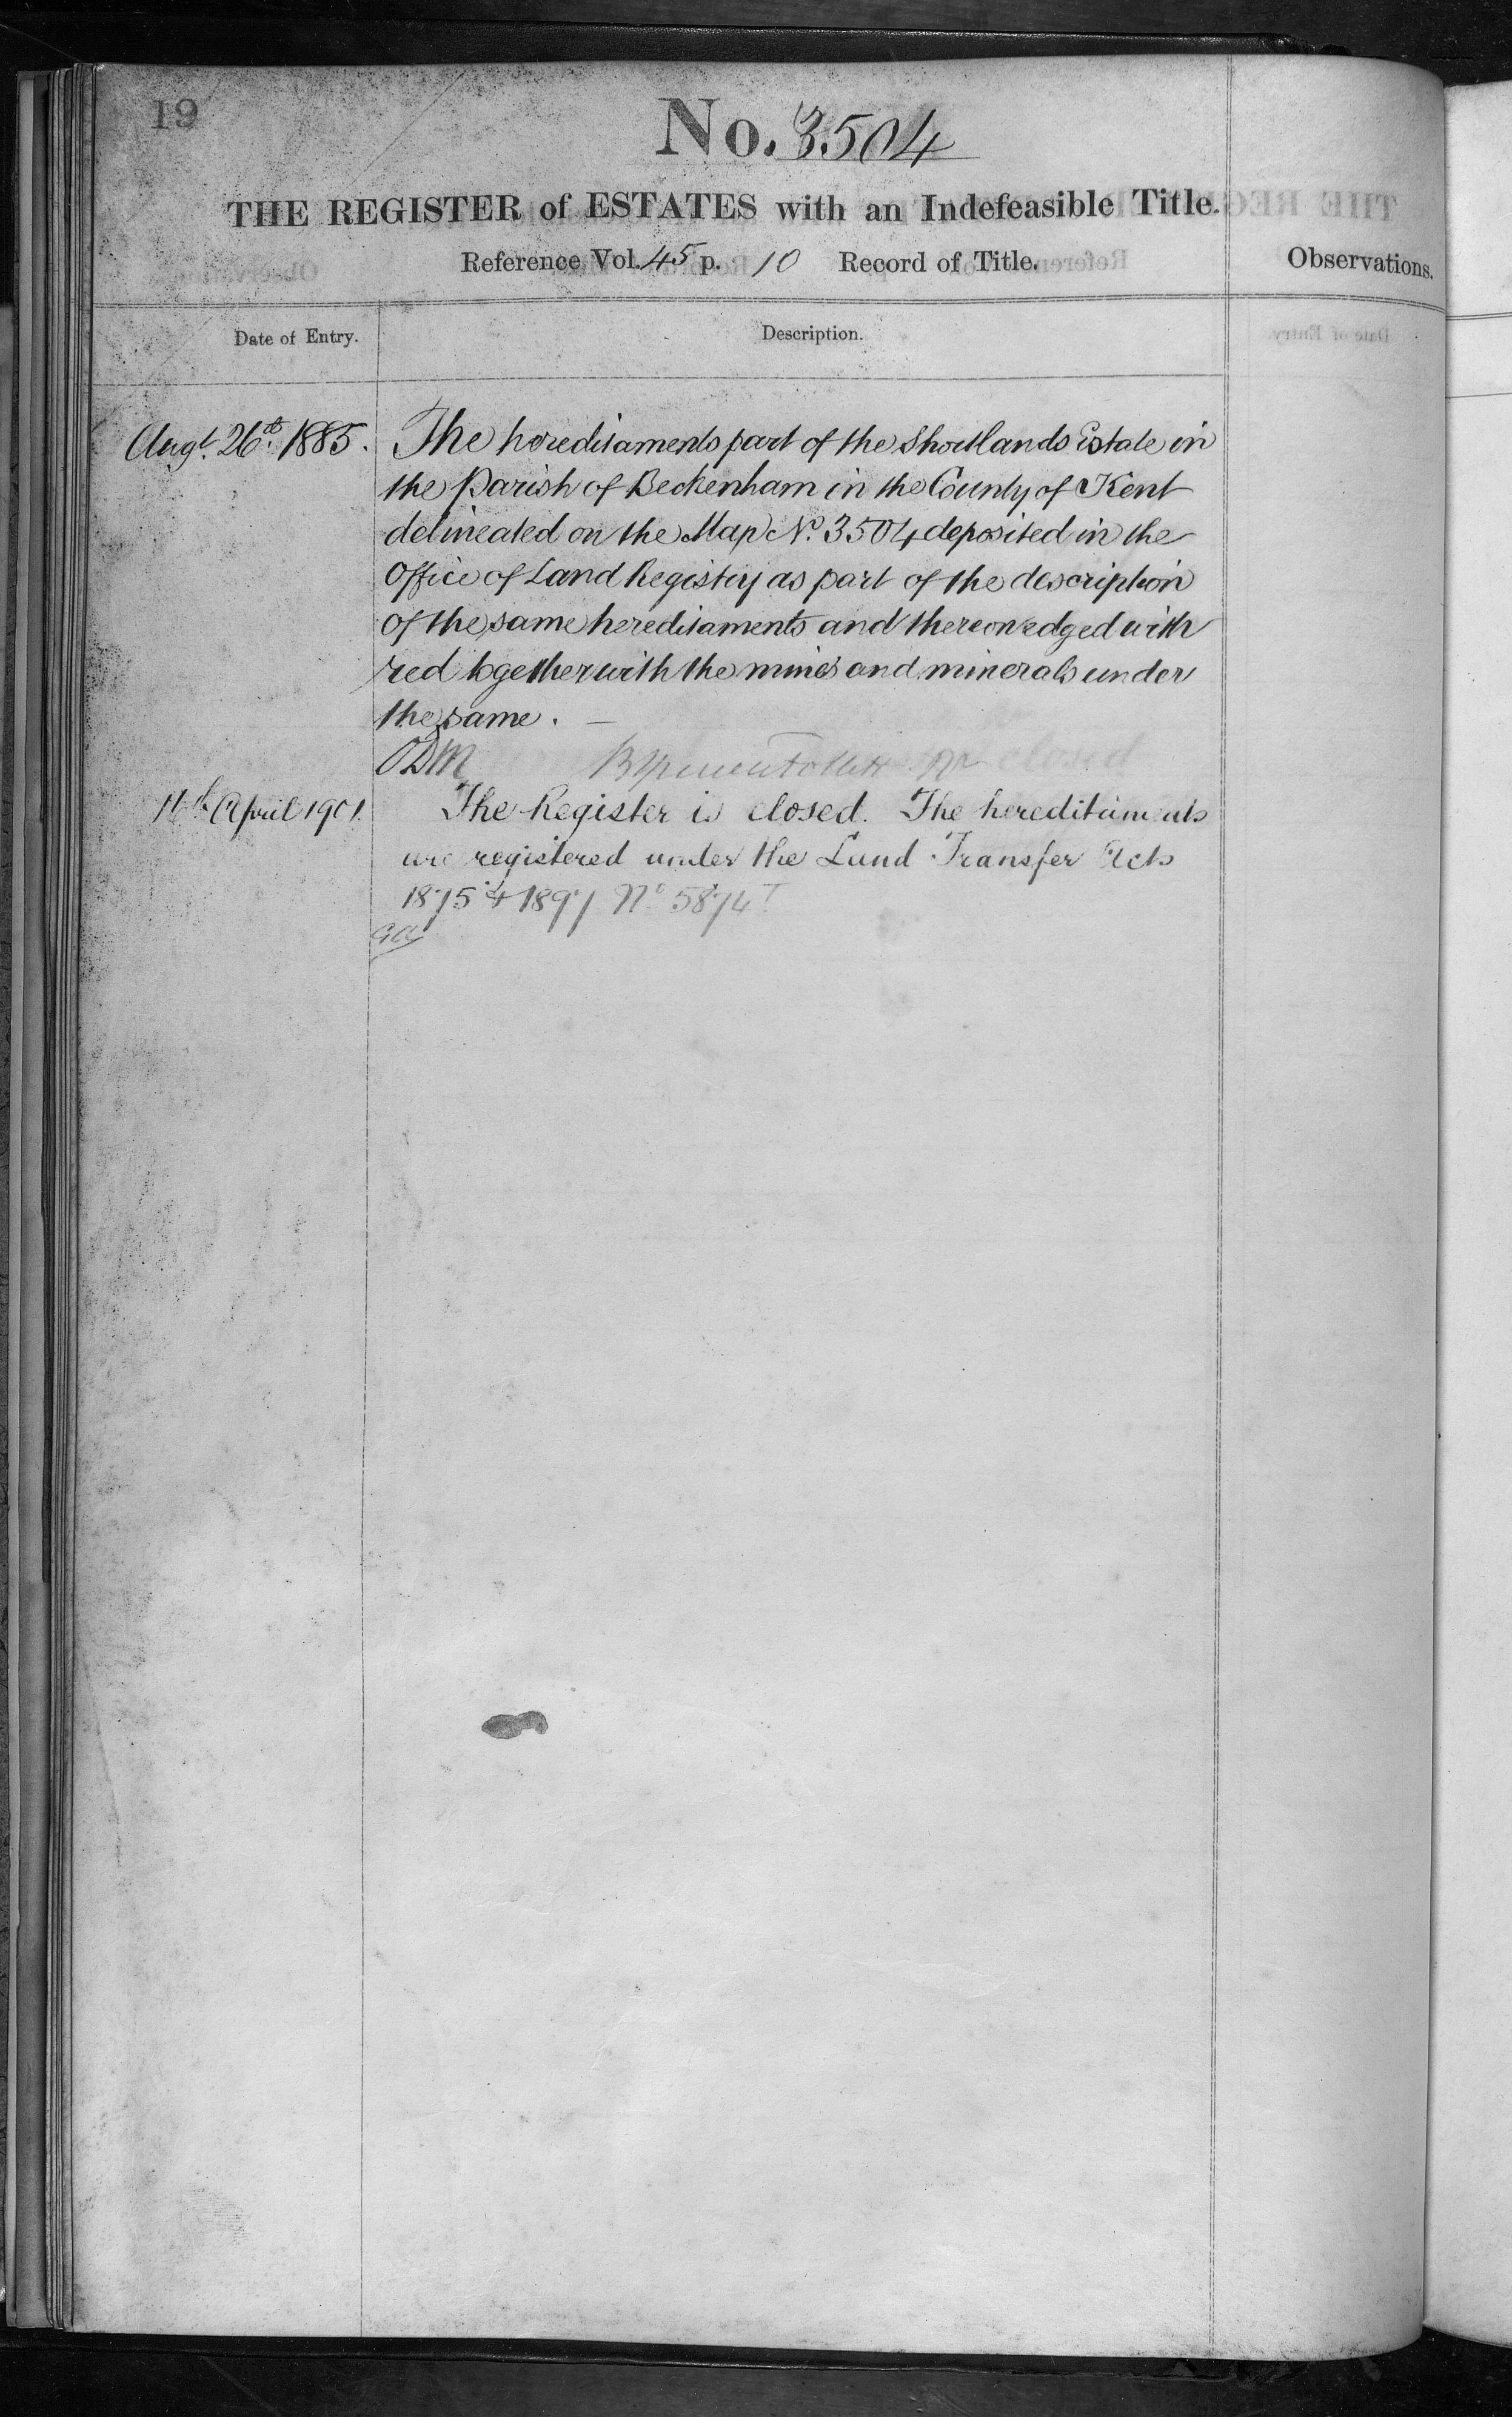 19
No. 3504
THE REGISTER of ESTATES with an Indefeasible Title.
Reference Vol. 45 p. 10 Record of Title.
Observations.
Date of Entry.
Description.
Augt. 26th. 1885.
The hereditaments part of the Shortlands Estate in
the Parish of Beckenham in the County of Kent
delineated on the Map No. 3504 deposited in the
Office of Land Registry as part of the description
of the same hereditaments and thereon edged with
red together with the mines and minerals under
the same. —
ODM
closed
11th April 1901.
The Register is closed. The hereditaments
are registered under the Land Transfer Acts
1875 & 1897 No 5874